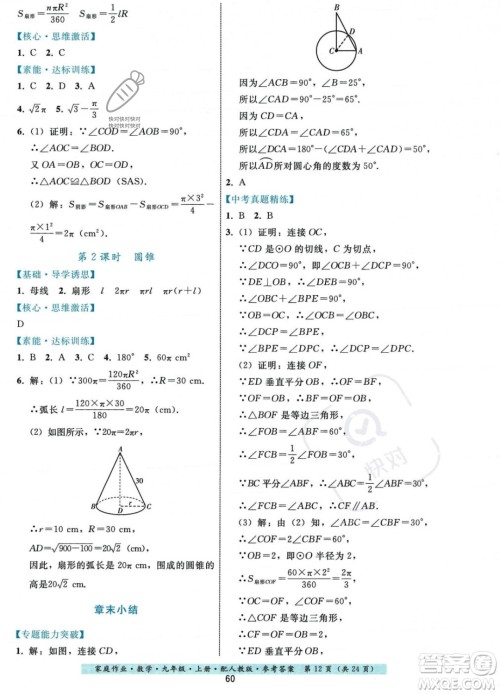 S扇形=nπR²/360 S扇形=1/2 lR
【核心·思维激活】
1. C 2. C
【素能·达标训练】
1. C 2. D 3. A
4. √2π 5. √3-π/3
6. (1) 证明：∵∠COD=∠AOB=90°，
∴∠AOC=∠BOD.
又 OA=OB，OC=OD，
∴△AOC≌△BOD (SAS).
(2) 解：S阴影=S扇形OAB-S扇形OCD=π×3²/4
-π×1²/4=2π.
第 2 课时 圆锥
【基础·导学诱思】
1. 母线 2. 扇形 l 2πr πrl πr²+πrl
【核心·思维激活】
D
【素能·达标训练】
1. B 2. A 3. C 4. 180° 5. 60π cm²
6. 解：(1) ∵300π=120πR²/360，∴R=30 cm.
∴弧长 l=120π×30/180=20π (cm).
(2) 如图所示，∵20π=2πr，
A
B D C
∴r=10 cm，R=30 cm，
AD=√900-100=20√2 (cm).
因此，扇形的弧长是 20π cm，围成的圆锥的
高是 20√2 cm.
章末小结
【专题能力突破】
B
D
C A
因为∠ACB=90°，∠B=25°，
所以∠A=90°-25°=65°.
所以∠CDA=∠CAD=65°.
所以∠DCA=180°-(∠CDA+∠CAD)=50°.
所以AD所对圆心角的度数为 50°.
2. A
【中考真题精练】
1. B 2. B
3. (1) 证明：连接 OC，
∵CD 是⊙O 的切线，∴∠OCD=90°.
∴∠OCB+∠DCP=90°.
∵ED⊥OB，∴∠BEP=90°.
∴∠OBC+∠BPE=90°.
∵OB=OC，∴∠OBC=∠OCB.
∴∠DCP=∠BPE.
∵∠BPE=∠DPC，∴∠DCP=∠DPC.
(2) 证明：连接 OF，
∵ED 垂直平分 OB，∴OF=BF.
∵OF=OB，∴OF=OB=BF.
∴△BOF 是等边三角形.
∴∠FOB=∠ABF=60°.
∴∠FCB=1/2∠BOF=30°.
∵BC 平分∠ABF，∴∠ABC=1/2∠ABF=30°.
∴∠ABC=∠FCB，∴CF∥AB.
(3) 解：由 (2) 可知∠FOB=60°，
∵OB=2，∴圆的半径为 2.
∴S扇形COF=60×π×2²/360=2π/3.
∵OB=2，ED 垂直平分 OB，
∴OE=1/2OB=1.
家庭作业·数学·九年级·上册·配人教版·参考答案 第 12 页（共 24 页）
60
快对快对快对
快对快对快对
快对
答案圈
MXQE.COM